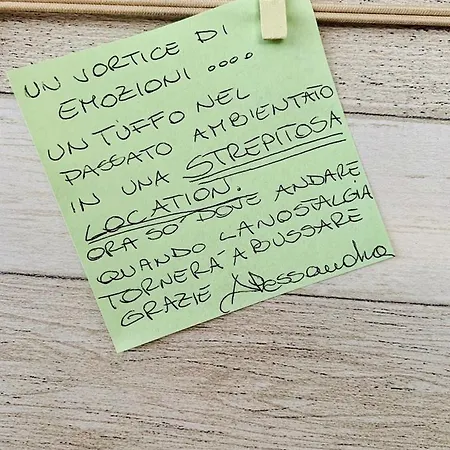 UN VORTICE DI
EMOZIONI ....
UN TUFFO NEL
PASSATO AMBIENTATO
IN UNA STREPITOSA
LOCATION.
ORA SO DOVE ANDARE
QUANDO LA NOSTALGIA
TORNERA' A BUSSARE
GRAZIE Alessandra